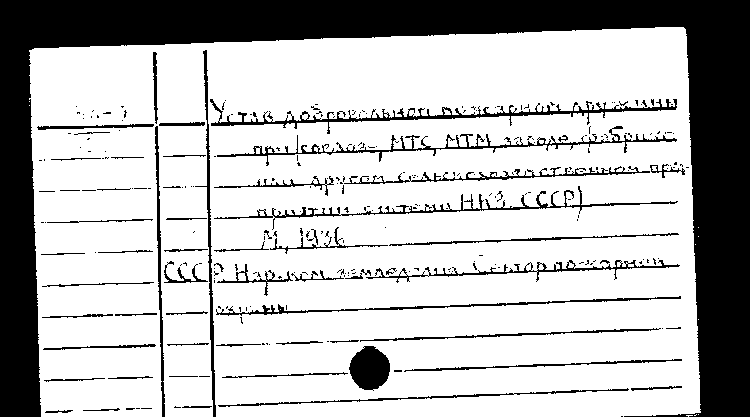 Устав добровольной пожарной дружины
при (совхозе, МТС, МТМ, заводе, фабрике
или другом сельскохозяйственном пред-
приятии системы НКЗ СССР)
М., 1936
СССР. Нар. ком. земледелия. Сектор пожарной
охраны